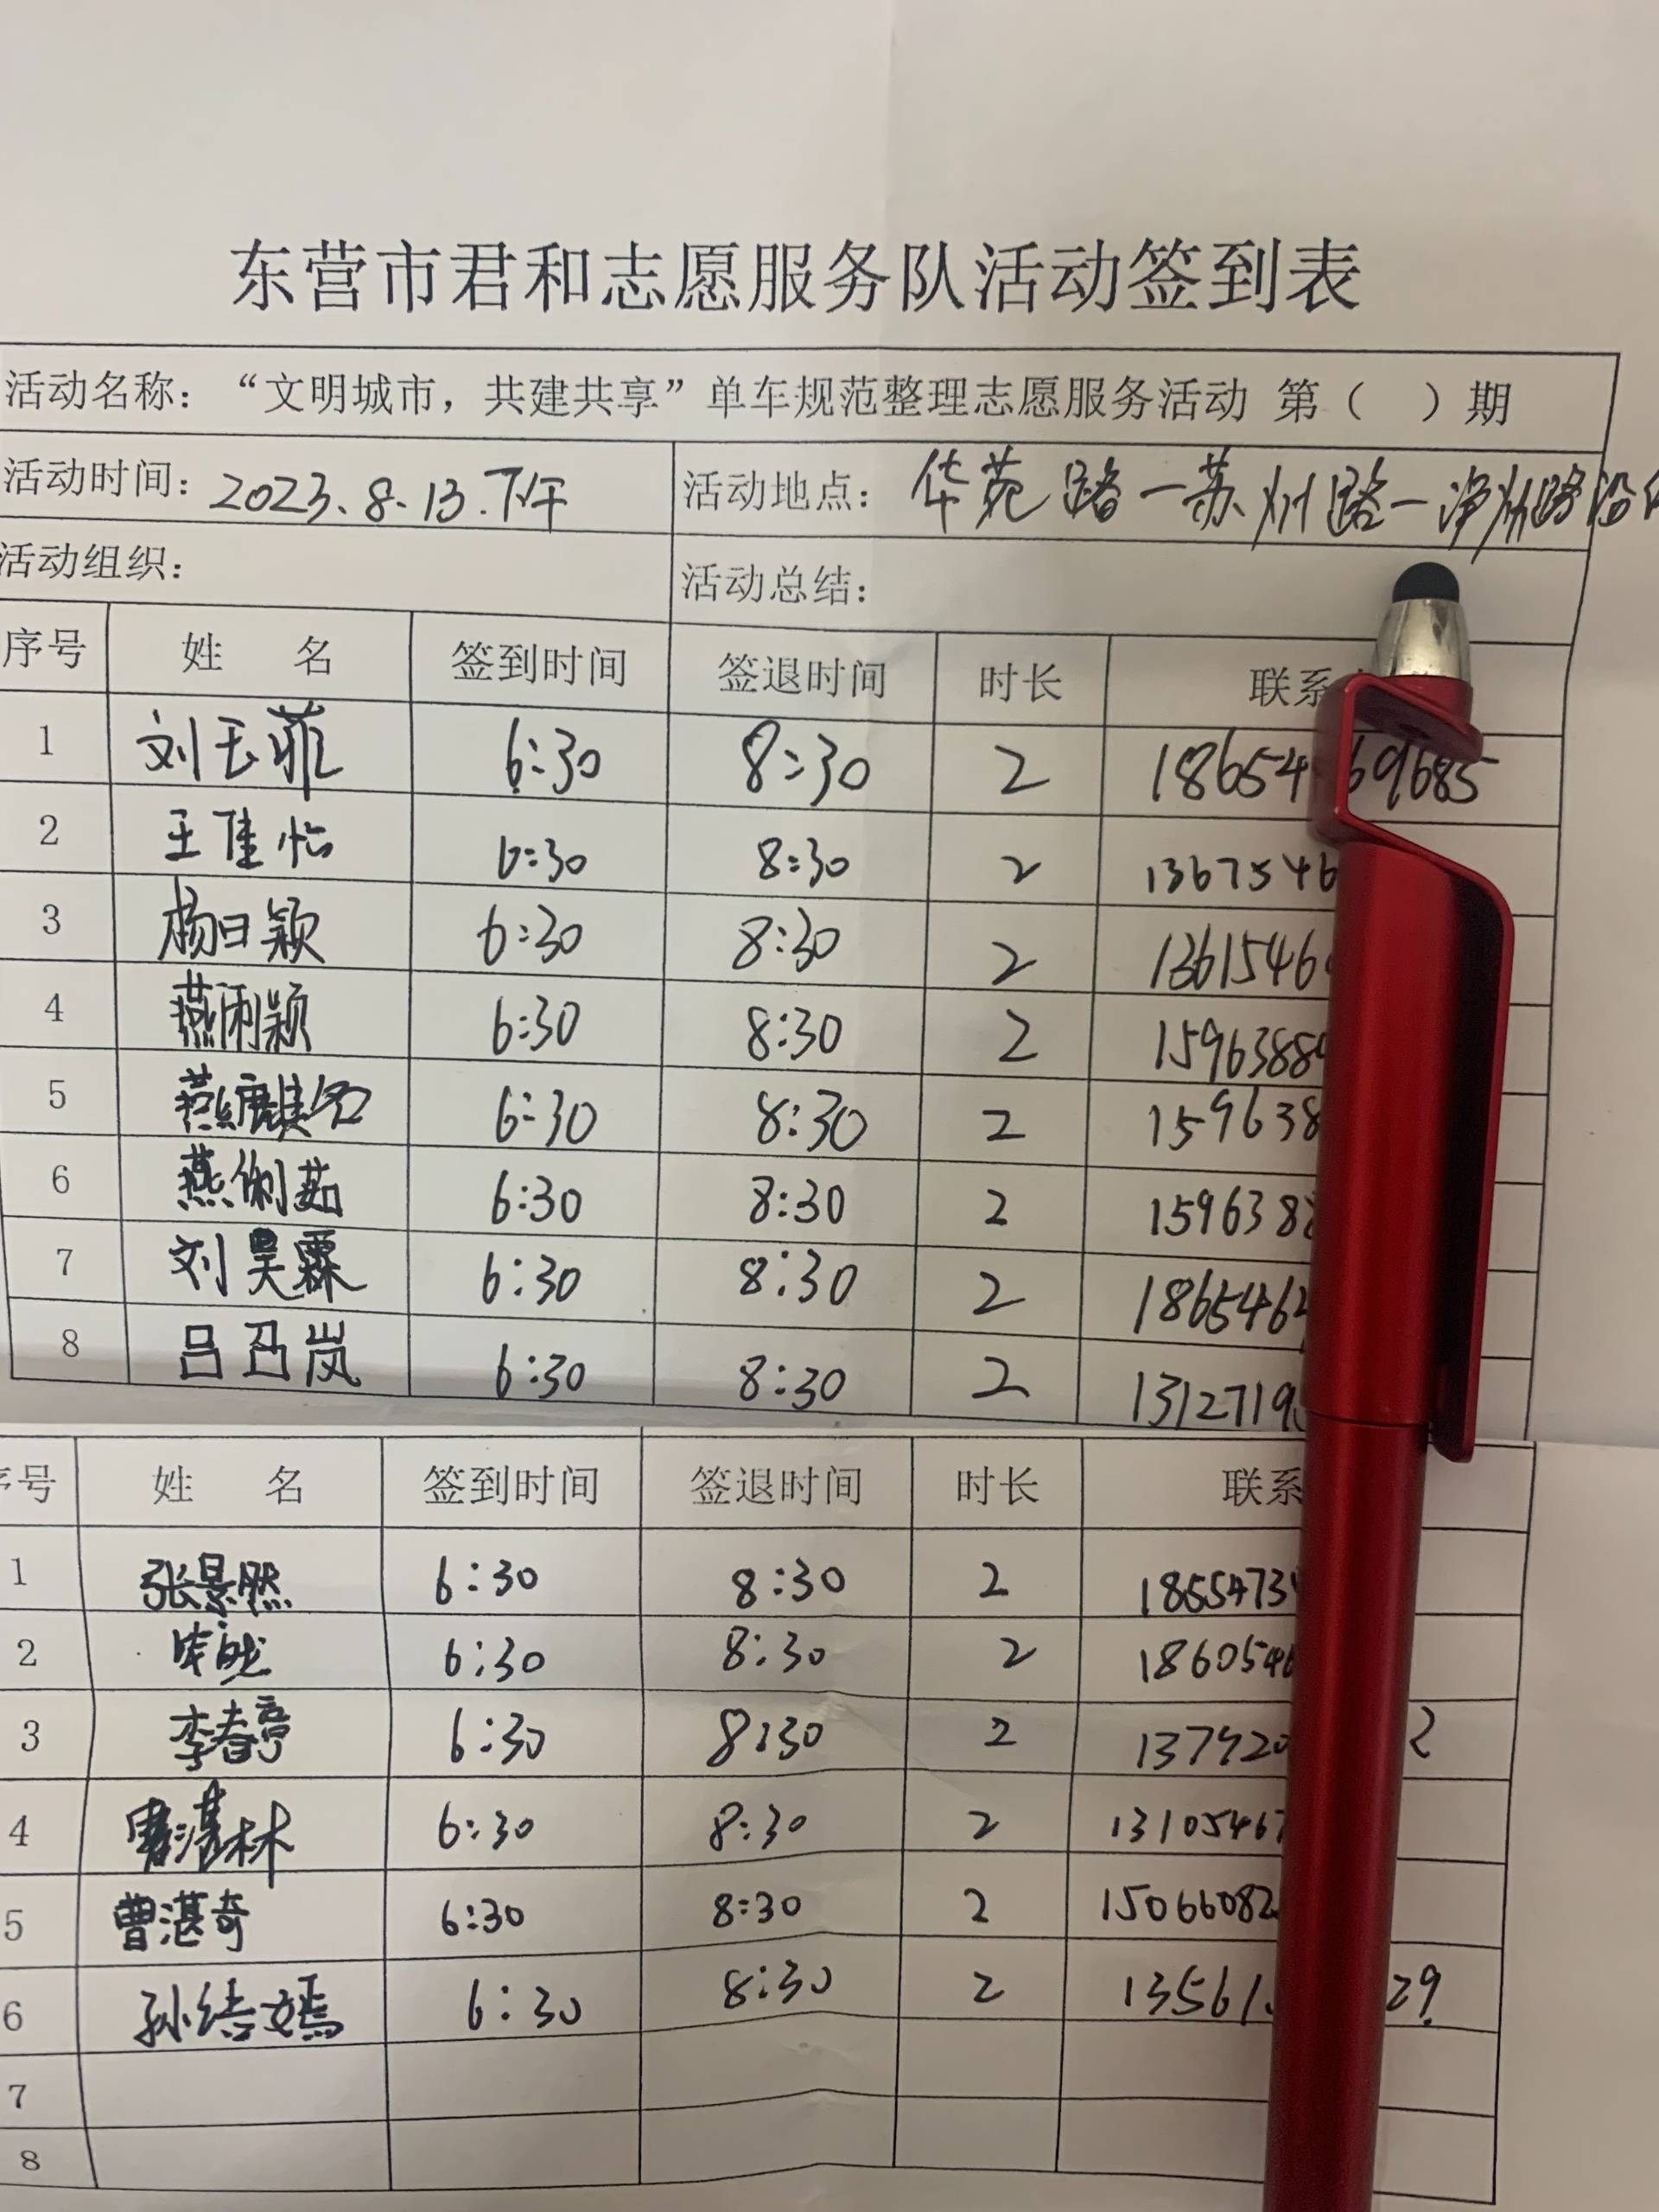 东营市君和志愿服务队活动签到表
活动名称：“文明城市，共建共享”单车规范整理志愿服务活动 第（ ）期
活动时间：2023.8.13.下午 活动地点：华苑路一苏州路一净州路沿
活动组织： 活动总结：
序号 姓 名 签到时间 签退时间 时长 联系
1 刘玉菲 6:30 8:30 2 18654 69685
2 王佳怡 6:30 8:30 2 1367546
3 杨日颖 6:30 8:30 2 1361546
4 燕俐颖 6:30 8:30 2 1596388
5 6:30 8:30 2 159638
6 燕俐茹 6:30 8:30 2 159638
7 刘昊霖 6:30 8:30 2 1865462
8 吕召岚 6:30 8:30 2 1312719
序号 姓 名 签到时间 签退时间 时长 联系
1 张景然 6:30 8:30 2 1855473
2 6:30 8:30 2 1860546
3 李春亭 6:30 8:30 2 137920 2
4 曹湛林 6:30 8:30 2 1310546
5 曹湛奇 6:30 8:30 2 15066082
6 孙结嫣 6:30 8:30 2 13561 29
7
8